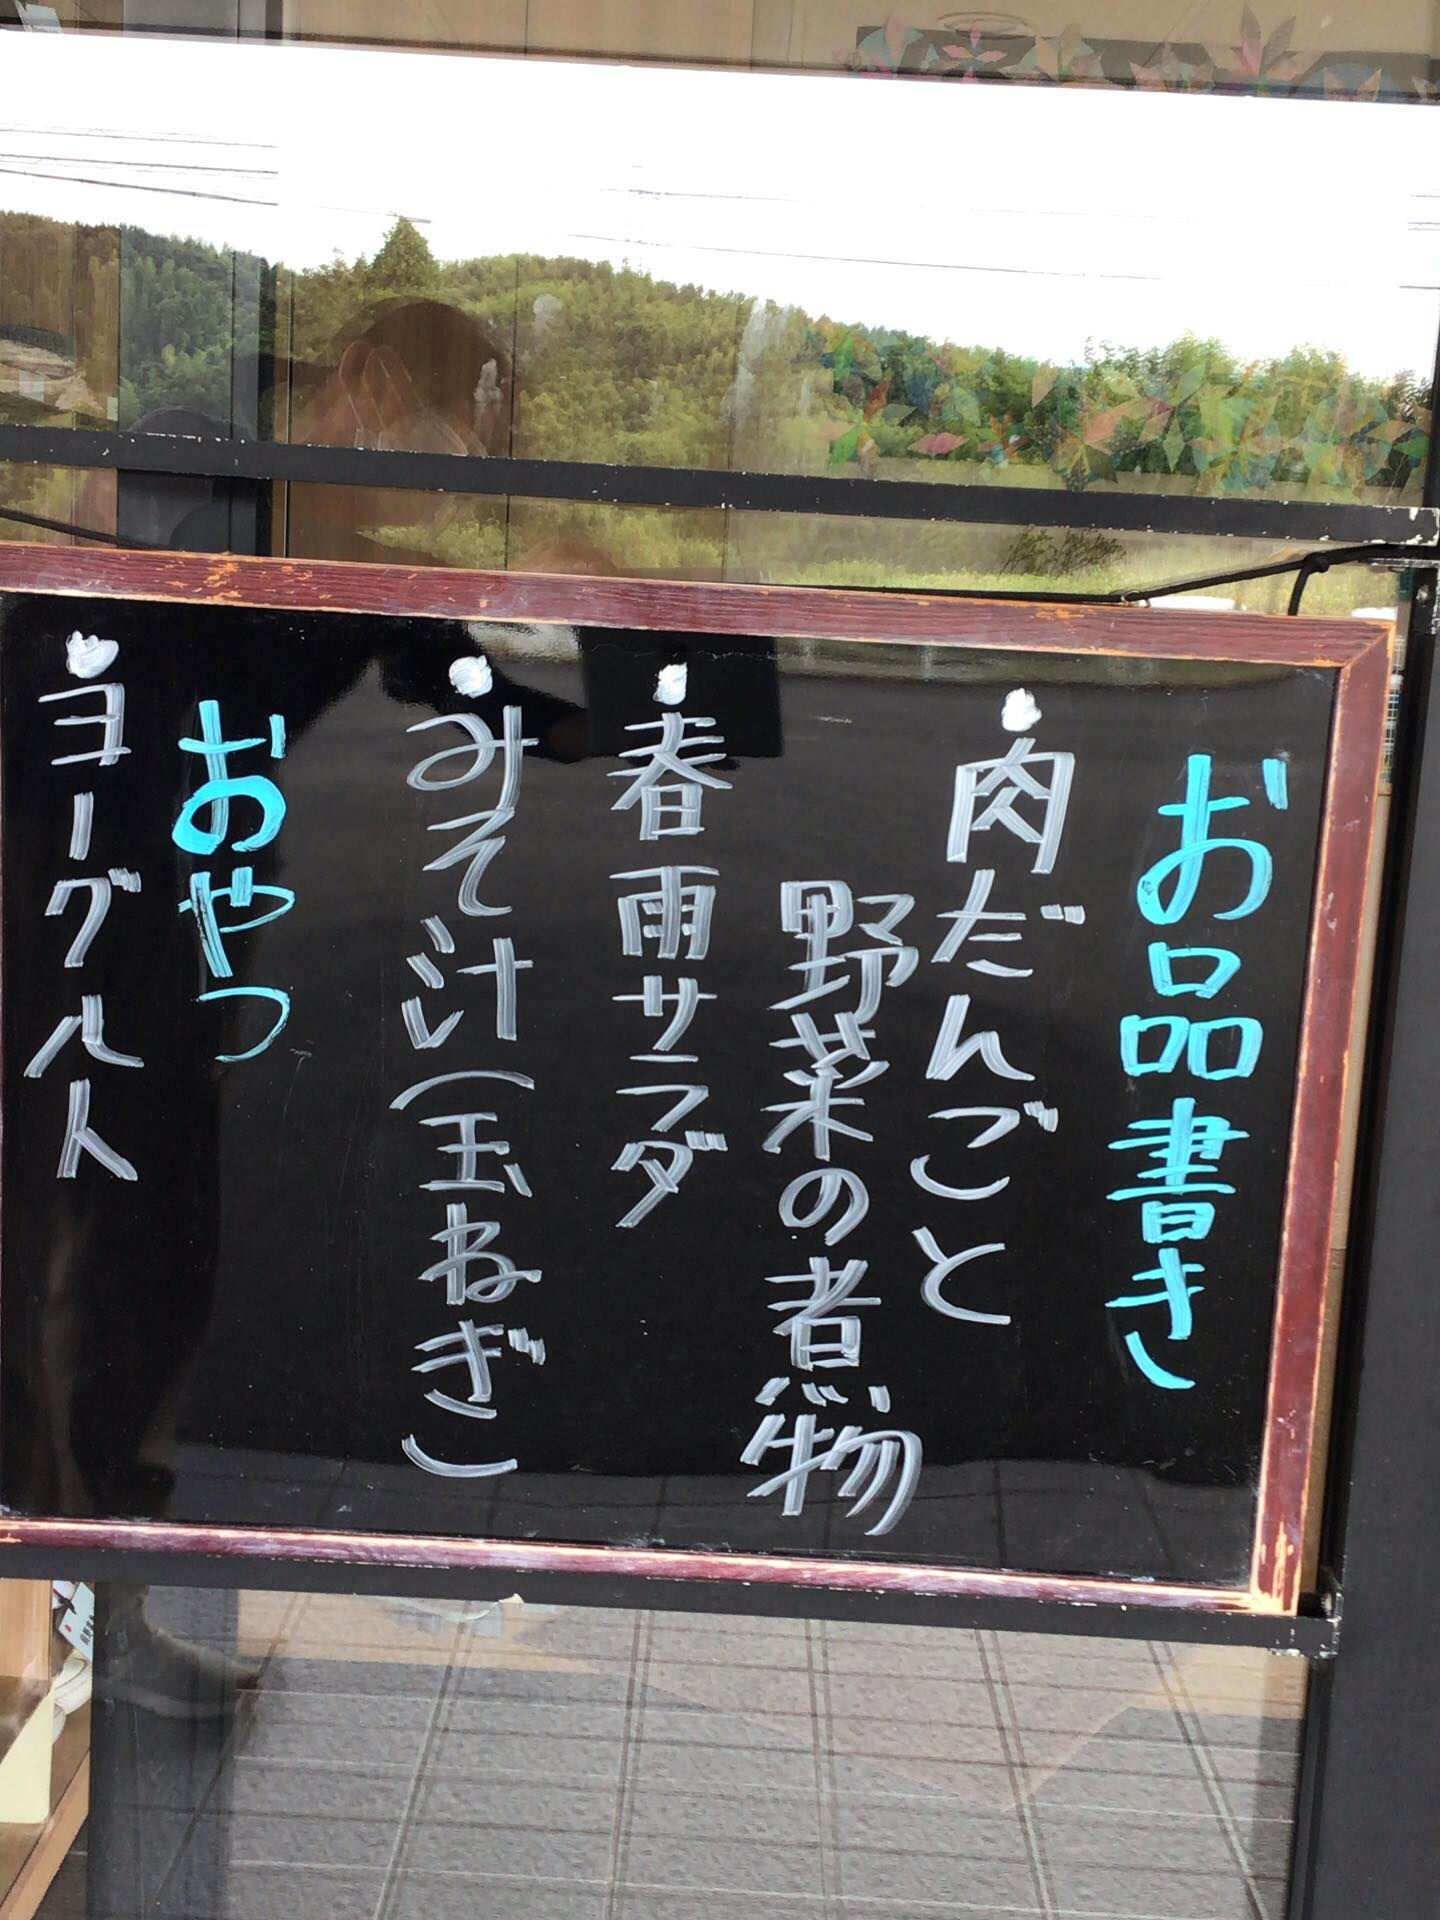 お品書き
・肉だんごと
野菜の煮物
・春雨サラダ
・みそ汁(玉ねぎ)
おやつ
・ヨーグルト